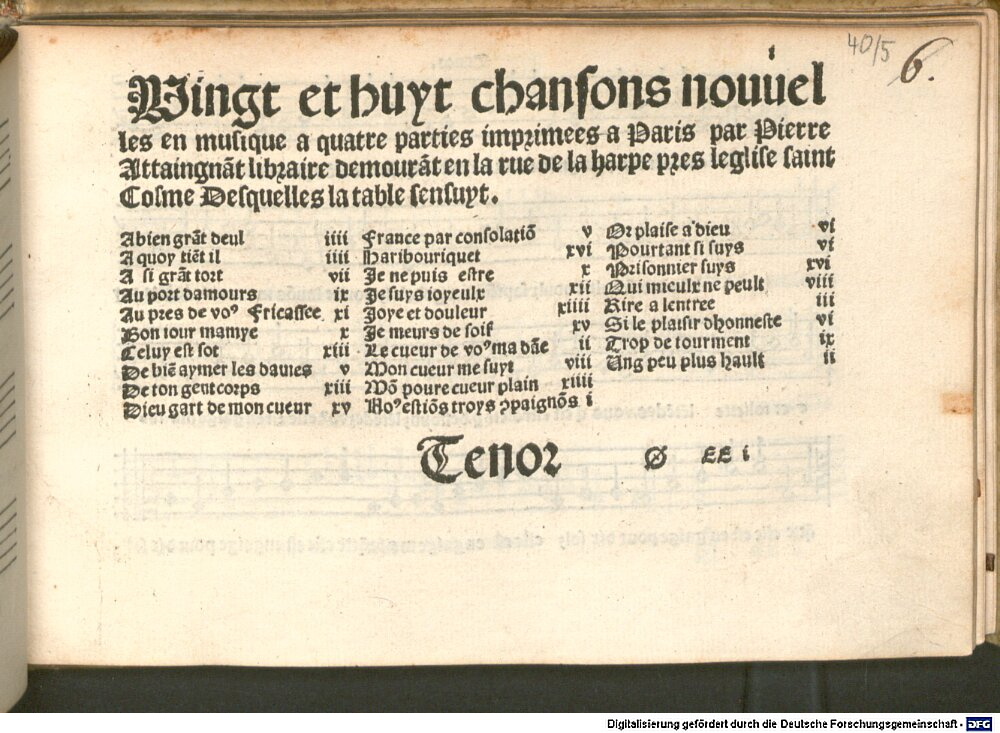 i
40/5 6.
Vingt et huyt chansons nouuel
les en musique a quatre parties imprimees a Paris par Pierre
Attaingnãt libraire demourãt en la rue de la harpe pres leglise saint
Cosme Desquelles la table sensuyt.
A bien grãt deul iiii
A quoy tiẽt il iiii
A si grãt tort vii
Au port damours ix
Au pres de voꝰ Fricassee xi
Bon iour mamye x
Celuy est sot xiii
De biẽ aymer les dames v
De ton gent corps xiii
Dieu gart de mon cueur xv
France par consolatiõ v
Haribouriquet xvi
Je ne puis estre x
Je suys ioyeulx xii
Joye et douleur xiiii
Je meurs de soif xv
Le cueur de voꝰ ma dãe ii
Mon cueur me suyt viii
Mõ poure cueur plain xiiii
Noꝰ estiõs troys ꝯpaignõs i
Or plaise a dieu vi
Pourtant si suys vi
Prisonnier suys xvi
Qui mieulx ne peult viii
Rire a lentree iii
Si le plaisir dhonneste vi
Trop de tourment ix
Ung peu plus hault ii
Tenor Ø EE i
Digitalisierung gefördert durch die Deutsche Forschungsgemeinschaft - DFG